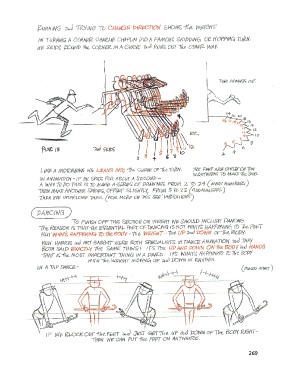 RUNNING and TRYING TO CHANGE DIRECTION SHOWS THE WEIGHT:
IN TURNING A CORNER CHARLIE CHAPLIN DID A FAMOUS SKIDDING OR HOPPING TURN.
HE SKIDS ROUND THE CORNER IN A CURVE and RUNS OUT THE OTHER WAY.
THEN RUNNING OUT
RUNS IN
and SKIDS
ETC.
LIKE A MOTORBIKE HE LEANS INTO THE CURVE OF THE TURN.
IN ANIMATION - IF HE SKIDS FOR ABOUT A SECOND -
A WAY TO DO THIS IS TO MAKE A SERIES OF DRAWINGS FROM 1 TO 23 (ODD NUMBERS)
THEN MAKE ANOTHER SERIES, OFFSET SLIGHTLY, FROM 2 TO 22 (EVEN NUMBERS)
(FOR MORE ON THIS SEE
DANCING
TO FINISH OFF THIS SECTION ON WEIGHT WE SHOULD INCLUDE DANCING.
THE REASON IS THAT THE ESSENTIAL PART OF DANCING IS NOT WHAT'S HAPPENING TO THE FEET
BUT WHAT'S HAPPENING TO THE BODY - THE WEIGHT - THE UP and DOWN OF THE BODY.
KEN HARRIS and ART BABBITT WERE BOTH SPECIALISTS IN DANCE ANIMATION and THEY
BOTH SAID EXACTLY THE SAME THING: IT'S THE UP AND DOWN ON THE BODY and HANDS
THAT IS THE MOST IMPORTANT THING IN A DANCE. IT'S WHAT'S HAPPENING TO THE BODY
WITH THE WEIGHT MOVING UP and DOWN IN RHYTHM.
IN A TAP DANCE -
IF WE BLOCK OUT THE FEET and JUST GET THE UP and DOWN OF THE BODY RIGHT -
THEN WE CAN PUT THE FEET ON ANYWHERE.
269